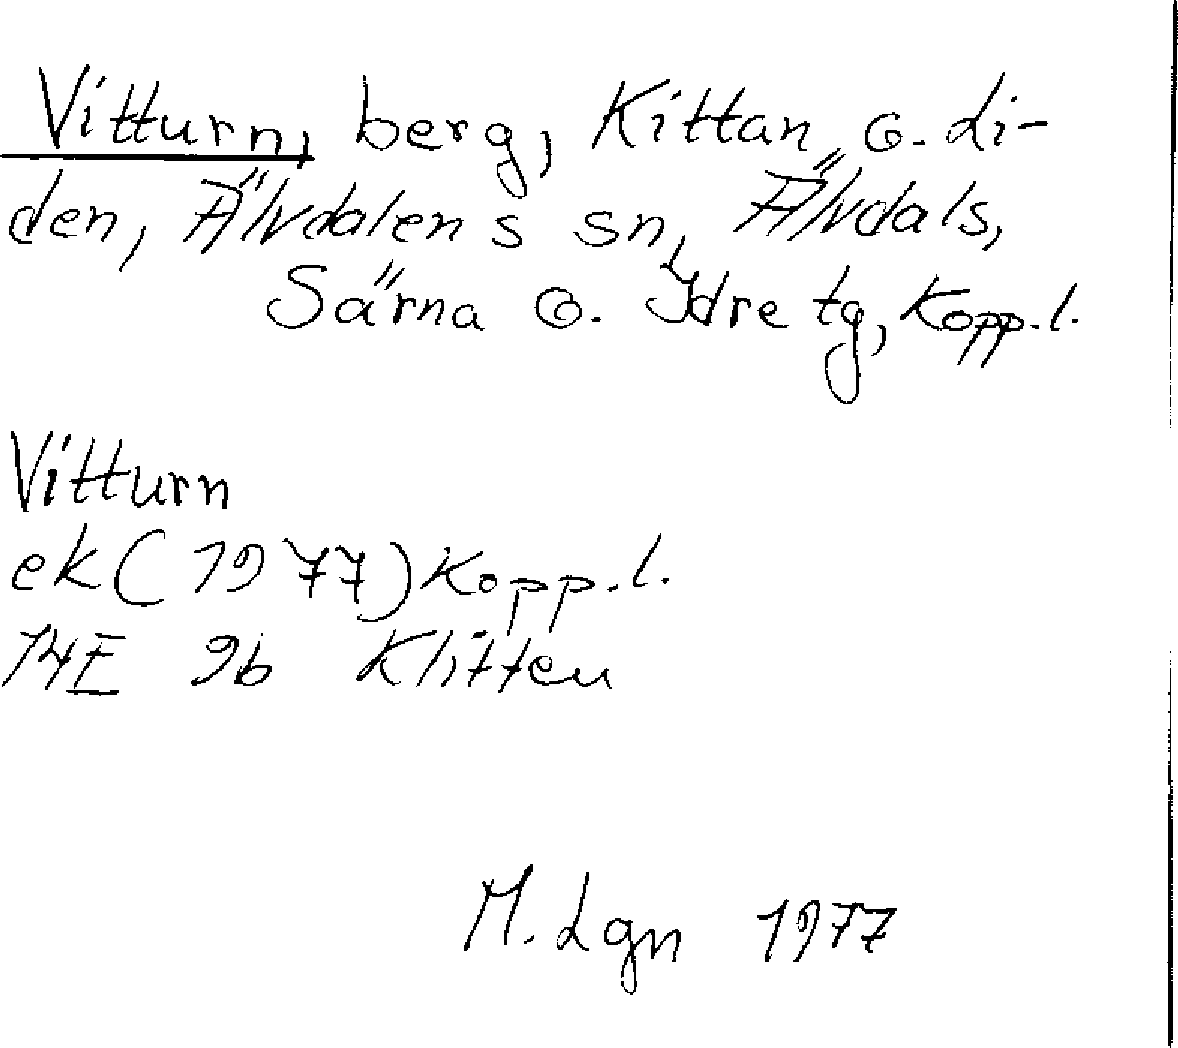 Vitturn, berg, Kittan o. Li-
den, Älvdalens sn, Älvdals,
Särna o. Idre tg, Kopp. l.
Vitturn
ek (1977) Kopp. l.
14E 9b Klitten
M. Lgn 1977